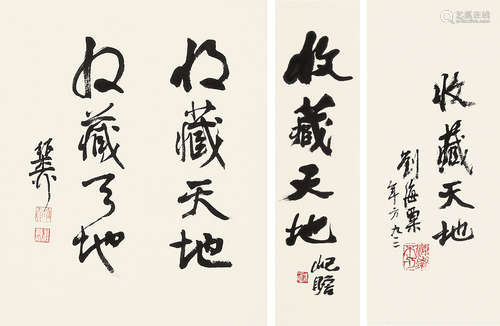 艺狐在线
收藏天地
劉海粟
年方九二
收藏天地
屺瞻
收藏天地
收藏天地